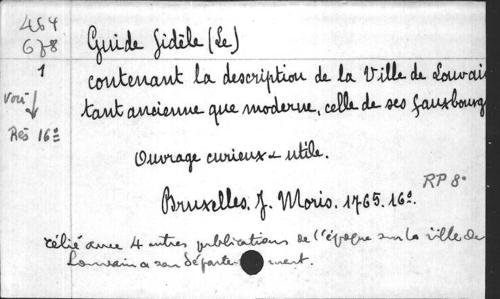 464
678
1
Voir
Rés 16º
Guide fidèle (Le)
contenant la description de la Ville de Louvain
tant ancienne que moderne, celle de ses fauxbourgs
Ouvrage curieux & utile.
RP 8º
Bruxelles. J. Moris. 1765. 16º.
rélié avec 4 autres publications de l'époque sur la ville de
Louvain & son département.